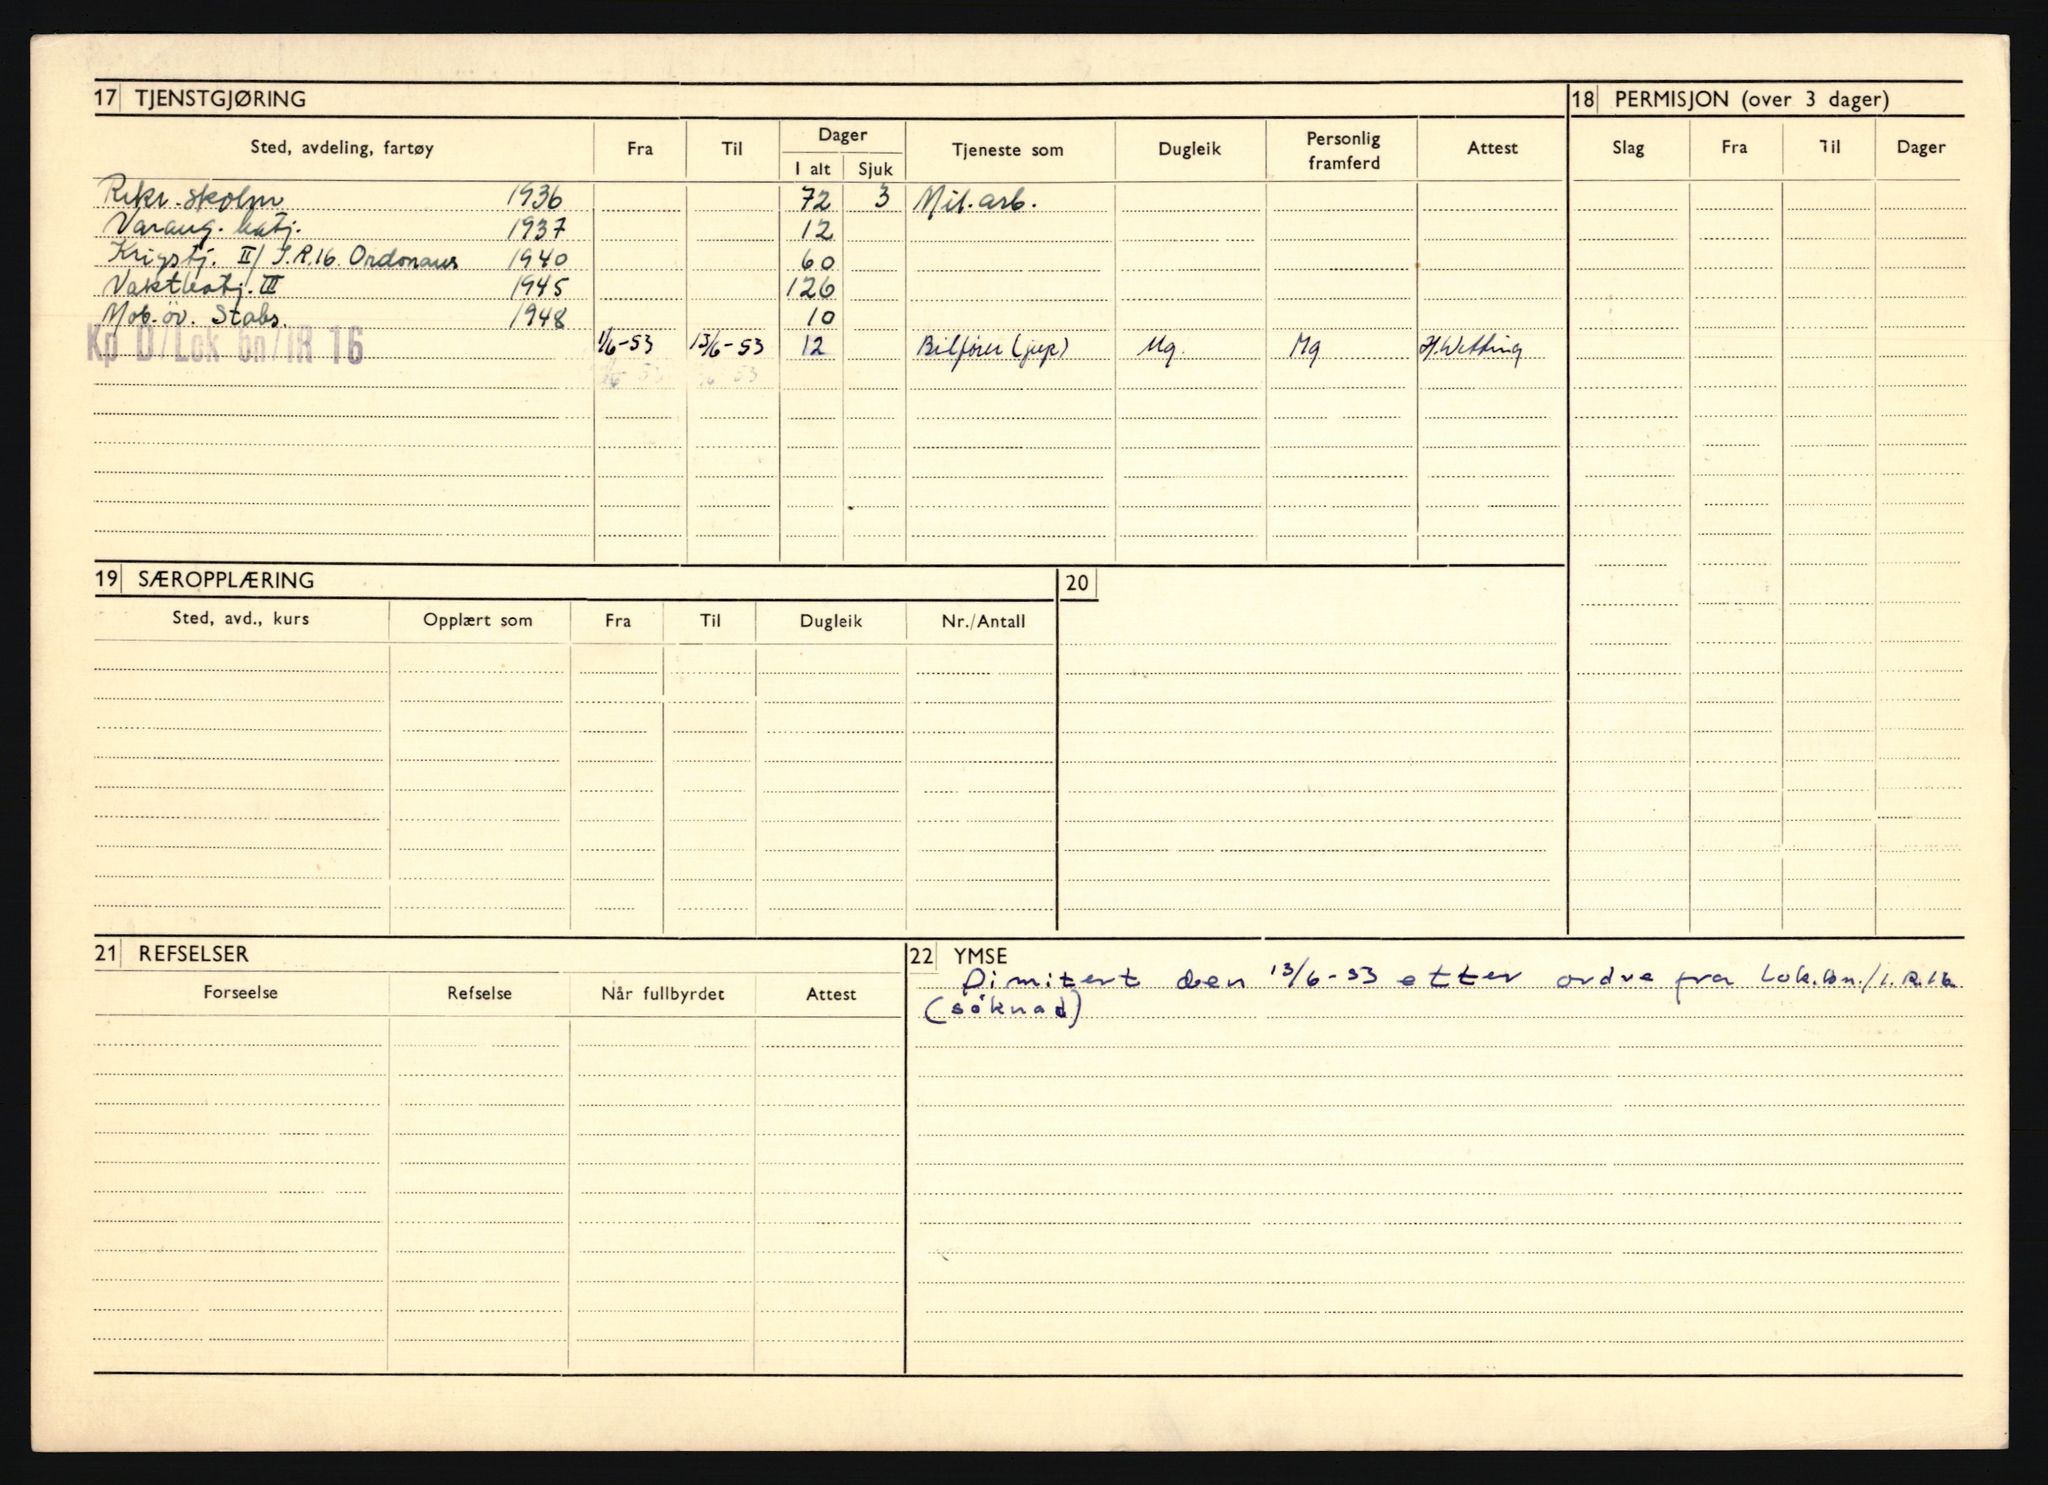 17 TJENSTGJØRING
18 PERMISJON (over 3 dager)
Sted, avdeling, fartøy Fra Til Dager Tjeneste som Dugleik Personlig framferd Attest
I alt Sjuk
Slag Fra Til Dager
Rekr.skolen 1936 72 3 Mil.arb.
Varang. batj. 1937 12
Krigstj. II/I.R.16 Ordonans 1940 60
Vaktbatj. III 1945 126
Mob.öv. Stabs. 1948 10
Kp D/Lok bn/IR 16 1/6-53 13/6-53 12 Bilfører (jeep) Mg. Mg
19 SÆROPPLÆRING
20
Sted, avd., kurs Opplært som Fra Til Dugleik Nr./Antall
21 REFSELSER
Forseelse Refselse Når fullbyrdet Attest
22 YMSE
Dimitert den 13/6-53 etter ordre fra Lok.bn./I.R.16
(söknad)